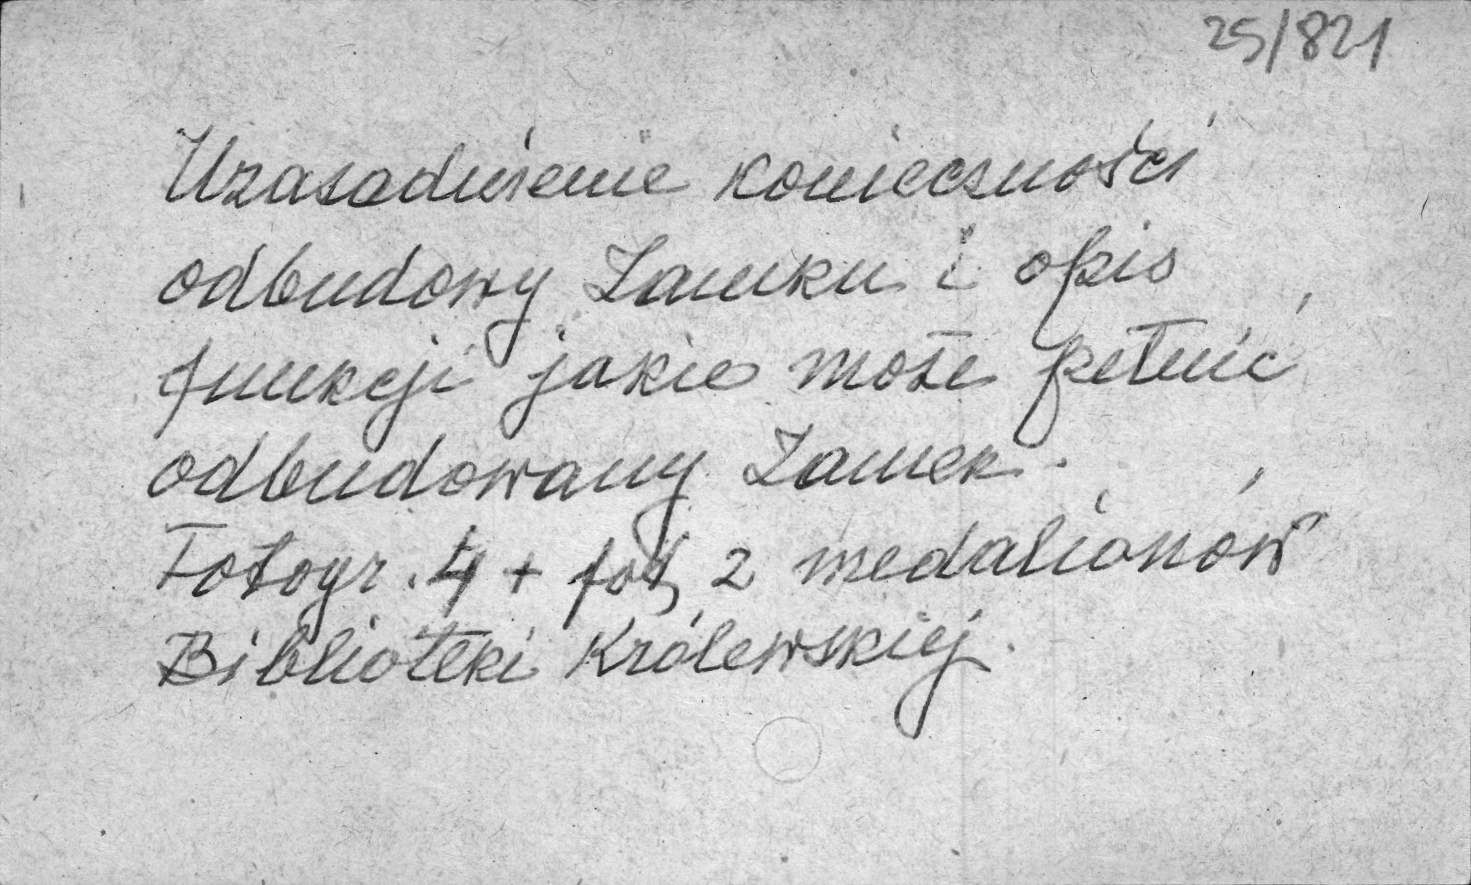 25/821
Uzasadnienie konieczności
odbudowy Zamku i opis
funkcji jakie może pełnić
odbudowany Zamek.
Fotogr. 4 + fot. 2 medalionów
Biblioteki Królewskiej.